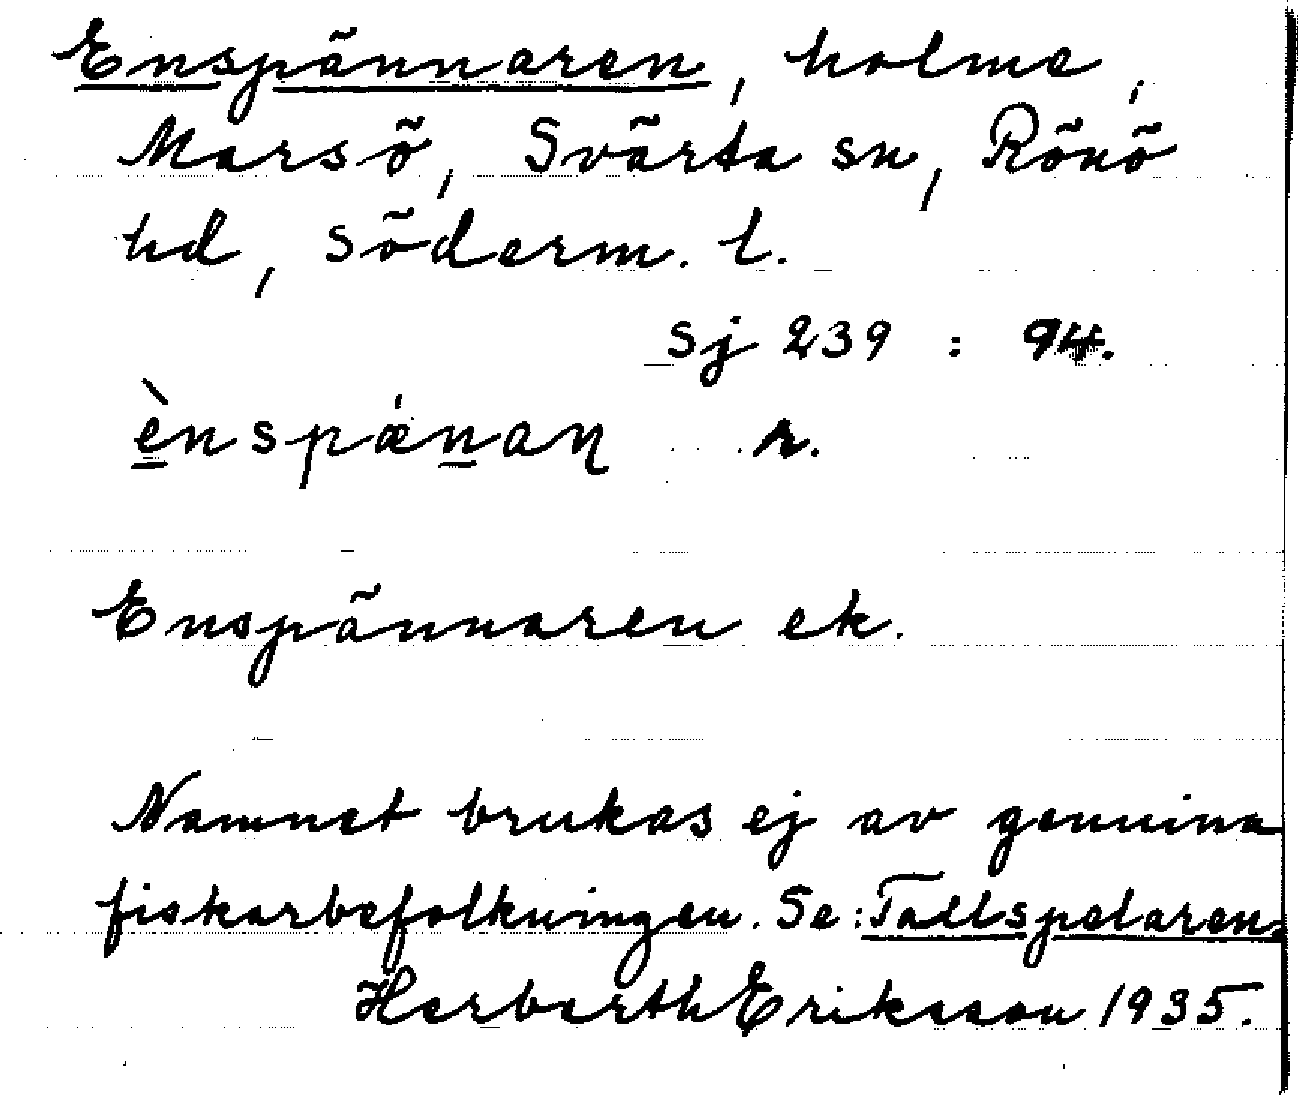 Enspännaren, holme,
Marsö, Svärta sn, Rönö
hd, Söderm. l.
Sj 239 : 94.
ènspæ̀nan r.
Enspännaren ek.
Namnet brukas ej av genuina
fiskarbefolkningen. Se: Tallspelaren.
Herbarth Eriksson 1935.